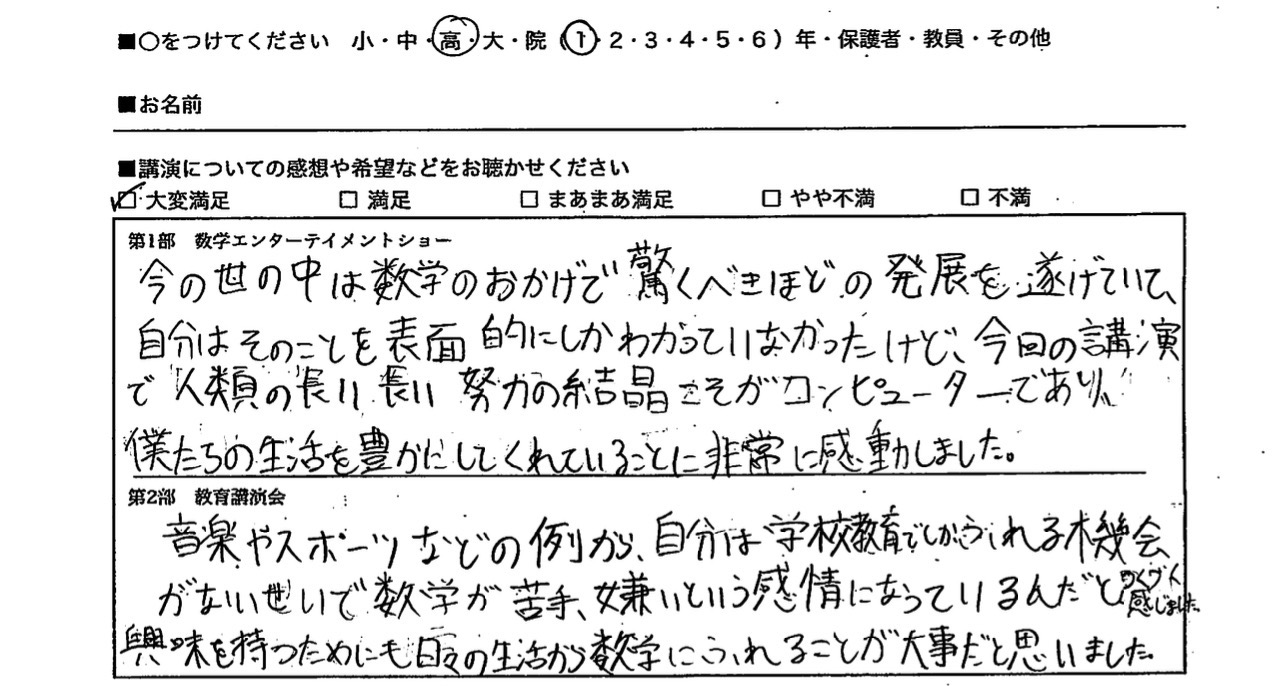 ■○をつけてください　小・中・高・大・院（1・2・3・4・5・6）年・保護者・教員・その他
■お名前
■講演についての感想や希望などをお聴かせください
☑大変満足　□ 満足　□ まあまあ満足　□ やや不満　□ 不満
第1部　数学エンターテイメントショー
今の世の中は数学のおかげで驚くべきほどの発展を遂げていて、
自分はそのことを表面的にしかわかっていなかったけど、今回の講演
で人類の長い長い努力の結晶こそがコンピューターであり、
僕たちの生活を豊かにしてくれていることに非常に感動しました。
第2部　教育講演会
音楽やスポーツなどの例から、自分は学校教育でしかふれる機会
がないせいで数学が苦手、嫌いという感情になっているんだとつくづく感じました
興味を持つためにも日々の生活から数学にふれることが大事だと思いました。